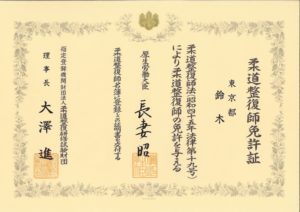 柔道整復師免許証
東京都
鈴木
柔道整復師法(昭和四十五年法律第十九号)
により柔道整復師の免許を与える
厚生労働大臣
長妻昭
柔道整復師名簿に登録しこの証書を交付する
指定登録機関財団法人柔道整復研修試験財団
理事長 大澤進